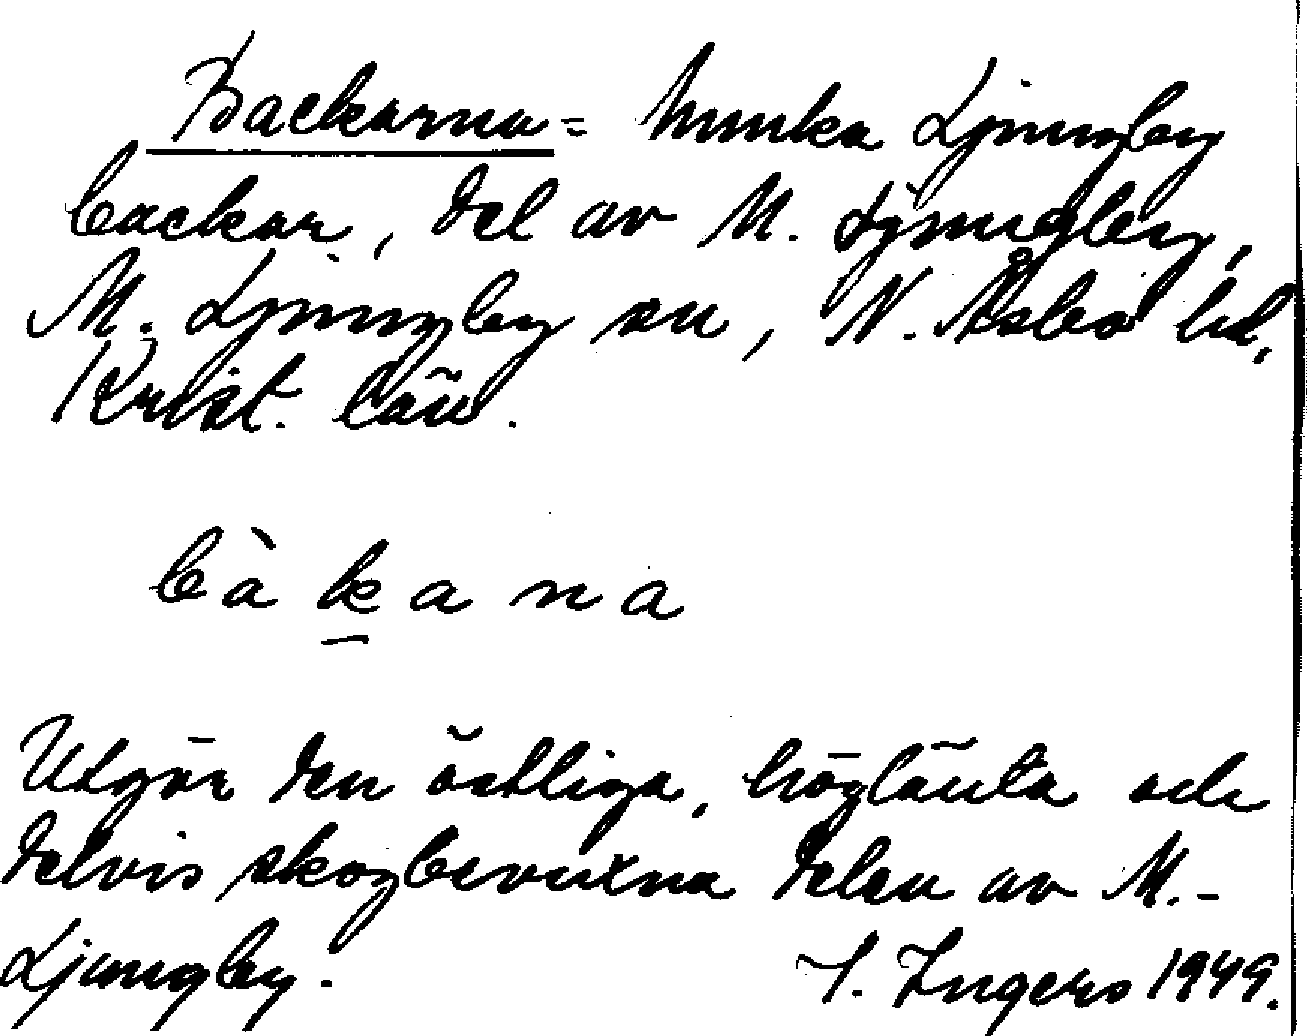 Backarna = Munka Ljungby
backar, del av M. Ljungby,
M. Ljungby sn, N. Åsbo hd,
Krist. län.
bàḵana
Utgör den östliga, höglänta och
delvis skogbevuxna delen av M.-
Ljungby. I. Ingers 1949.